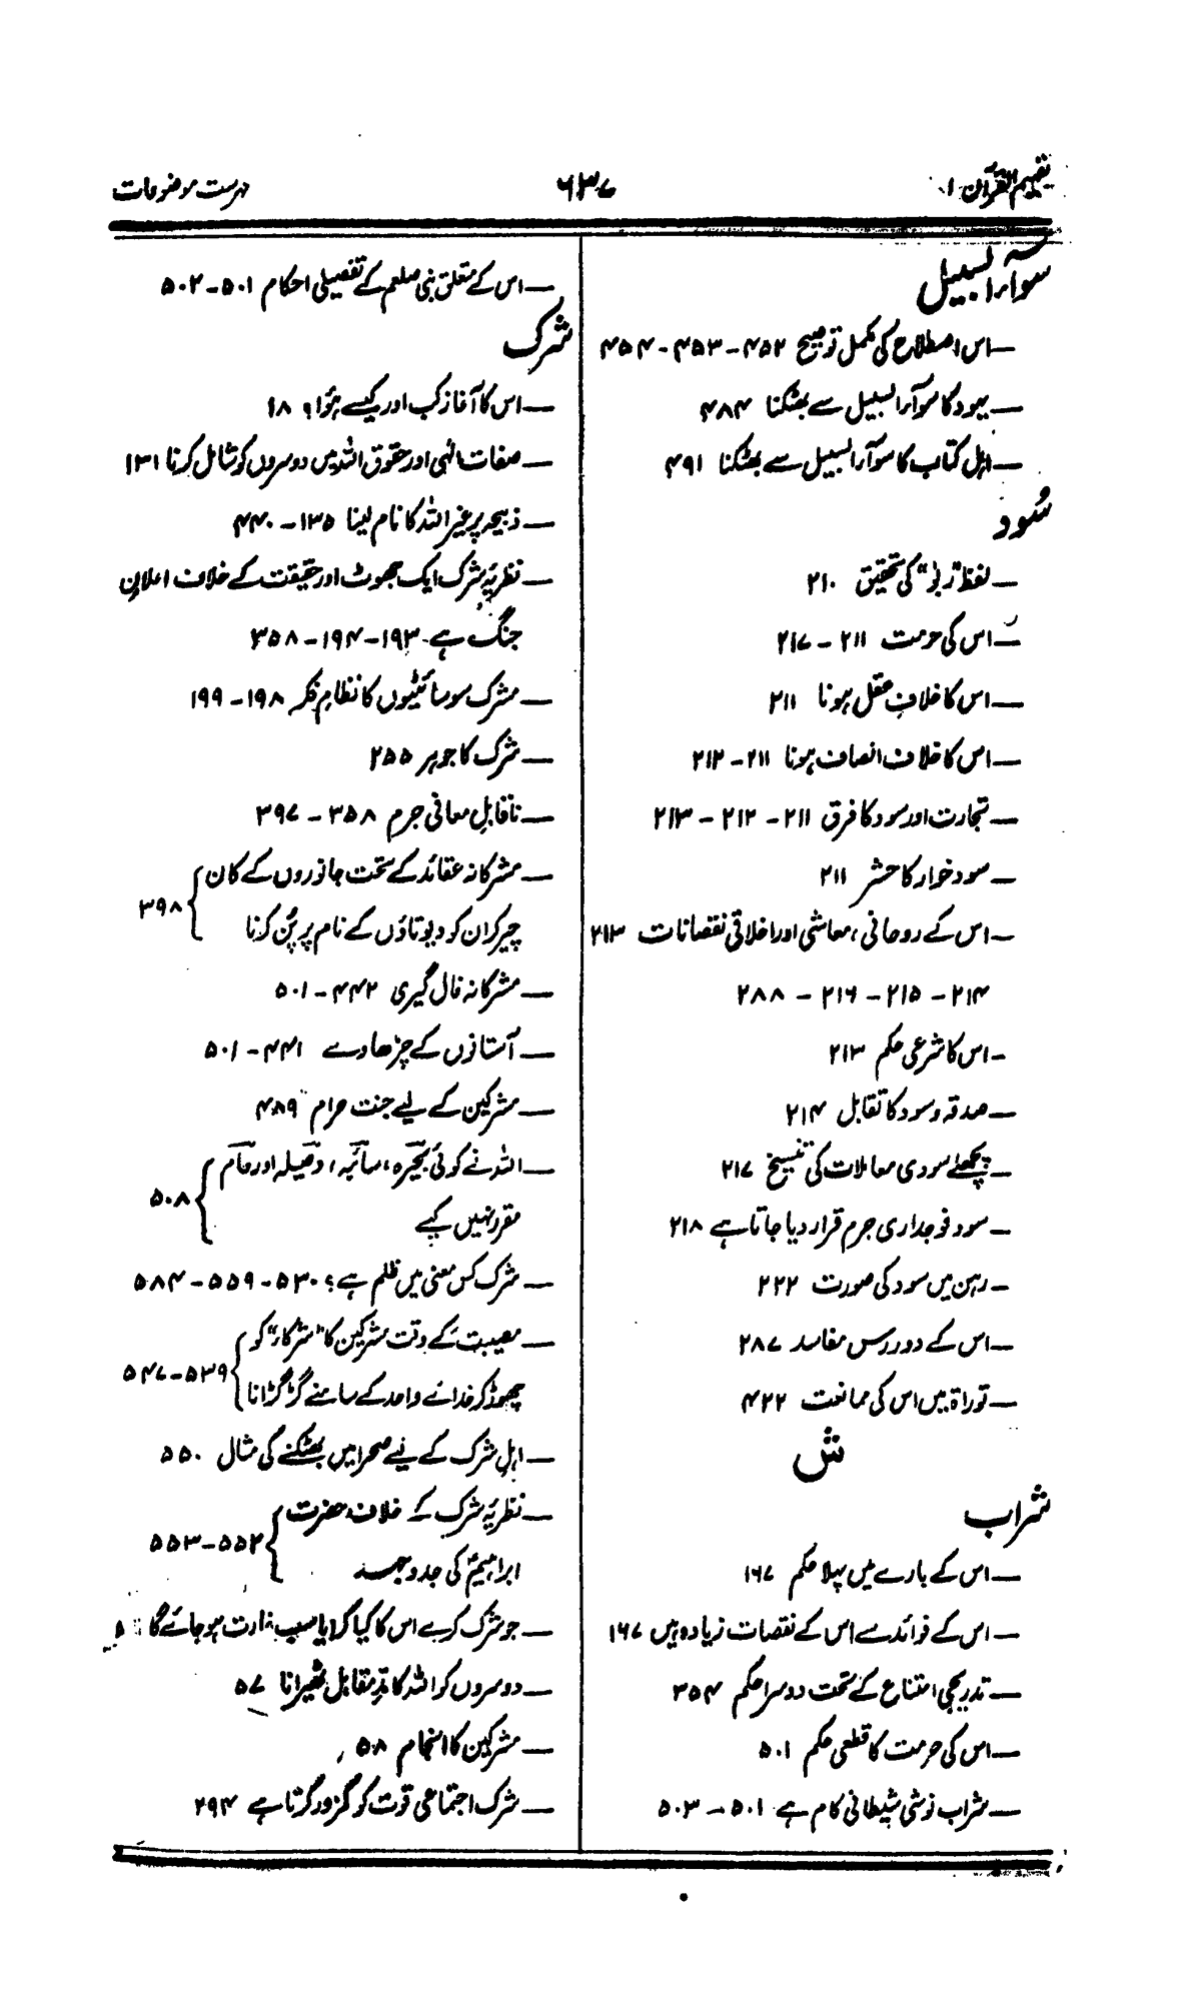 تفہیم القرآن ۱
۶۳۷
فہرست موضوعات
سوآء السبیل
— اس اصطلاح کی مکمل توضیح ۴۵۲ - ۴۵۳ - ۴۵۴
— یہود کا سوآء السبیل سے بھٹکنا ۴۸۴
— اہل کتاب کا سوآء السبیل سے بھٹکنا ۴۹۱
سُود
— لفظ ”ربٰو“ کی تحقیق ۲۱۰
— اس کی حرمت ۲۱۱ - ۲۱۷
— اس کا خلافِ عقل ہونا ۲۱۱
— اس کا خلاف انصاف ہونا ۲۱۱ - ۲۱۲
— تجارت اور سود کا فرق ۲۱۱ - ۲۱۲ - ۲۱۳
— سود خوار کا حشر ۲۱۱
— اس کے روحانی، معاشی اور اخلاقی نقصانات ۲۱۳
۲۱۴ - ۲۱۵ - ۲۱۶ - ۲۸۸
— اس کا شرعی حکم ۲۱۳
— صدقہ و سود کا تقابل ۲۱۴
— پچھلے سودی معاملات کی تنسیخ ۲۱۷
— سود فوجداری جرم قرار دیا جاتا ہے ۲۱۸
— رہن میں سود کی صورت ۲۲۲
— اس کے دور رس مفاسد ۲۸۷
— توراۃ میں اس کی ممانعت ۴۲۲
ش
شراب
— اس کے بارے میں پہلا حکم ۱۶۷
— اس کے فوائد سے اس کے نقصات زیادہ ہیں ۱۶۷
— تدریجی امتناع کے تحت دوسرا حکم ۳۵۴
— اس کی حرمت کا قطعی حکم ۵۰۱
— شراب نوشی شیطانی کام ہے ۵۰۱ - ۵۰۳
— اس کے متعلق نبی صلعم کے تفصیلی احکام ۵۰۱ - ۵۰۲
شرک
— اس کا آغاز کب اور کیسے ہوا؟ ۱۸
— صفات الٰہی اور حقوق اللہ میں دوسروں کو شامل کرنا ۱۳۱
— ذبیحہ پر غیر اللہ کا نام لینا ۱۳۵ - ۴۴۰
— نظریۂ شرک ایک جھوٹ اور حقیقت کے خلاف اعلانِ
جنگ ہے ۱۹۳ - ۱۹۴ - ۳۵۸
— مشرک سوسائٹیوں کا نظامِ فکر ۱۹۸ - ۱۹۹
— شرک کا جوہر ۲۵۵
— ناقابلِ معافی جرم ۳۵۸ - ۳۹۷
— مشرکانہ عقائد کے تحت جانوروں کے کان
چیر کر ان کو دیوتاؤں کے نام پر پُن کرنا ۳۹۸
— مشرکانہ فال گیری ۴۴۲ - ۵۰۱
— آستانوں کے چڑھاوے ۴۴۱ - ۵۰۱
— مشرکین کے لیے جنت حرام ۴۸۹
— اللہ نے کوئی بحیرہ، سائبہ، وصیلہ اور حام
مقرر نہیں کیے ۵۰۸
— شرک کس معنی میں ظلم ہے؟ ۵۳۰ - ۵۵۹ - ۵۸۴
— مصیبت کے وقت مشرکین کا ”شرکاء“ کو
چھوڑ کر خدائے واحد کے سامنے گڑگڑانا ۵۳۹ - ۵۴۷
— اہلِ شرک کے لیے صحرا میں بھٹکنے کی مثال ۵۵۰
— نظریۂ شرک کے خلاف حضرت
ابراہیمؑ کی جدوجہد ۵۵۲ - ۵۵۳
— جو شرک کرے اس کا کیا کرایا سب غارت ہو جائے گا
— دوسروں کو اللہ کا مدِّ مقابل ٹھیرانا ۵۷
— مشرکین کا انجام ۵۸
— شرک اجتماعی قوت کو کمزور کرتا ہے ۲۹۴